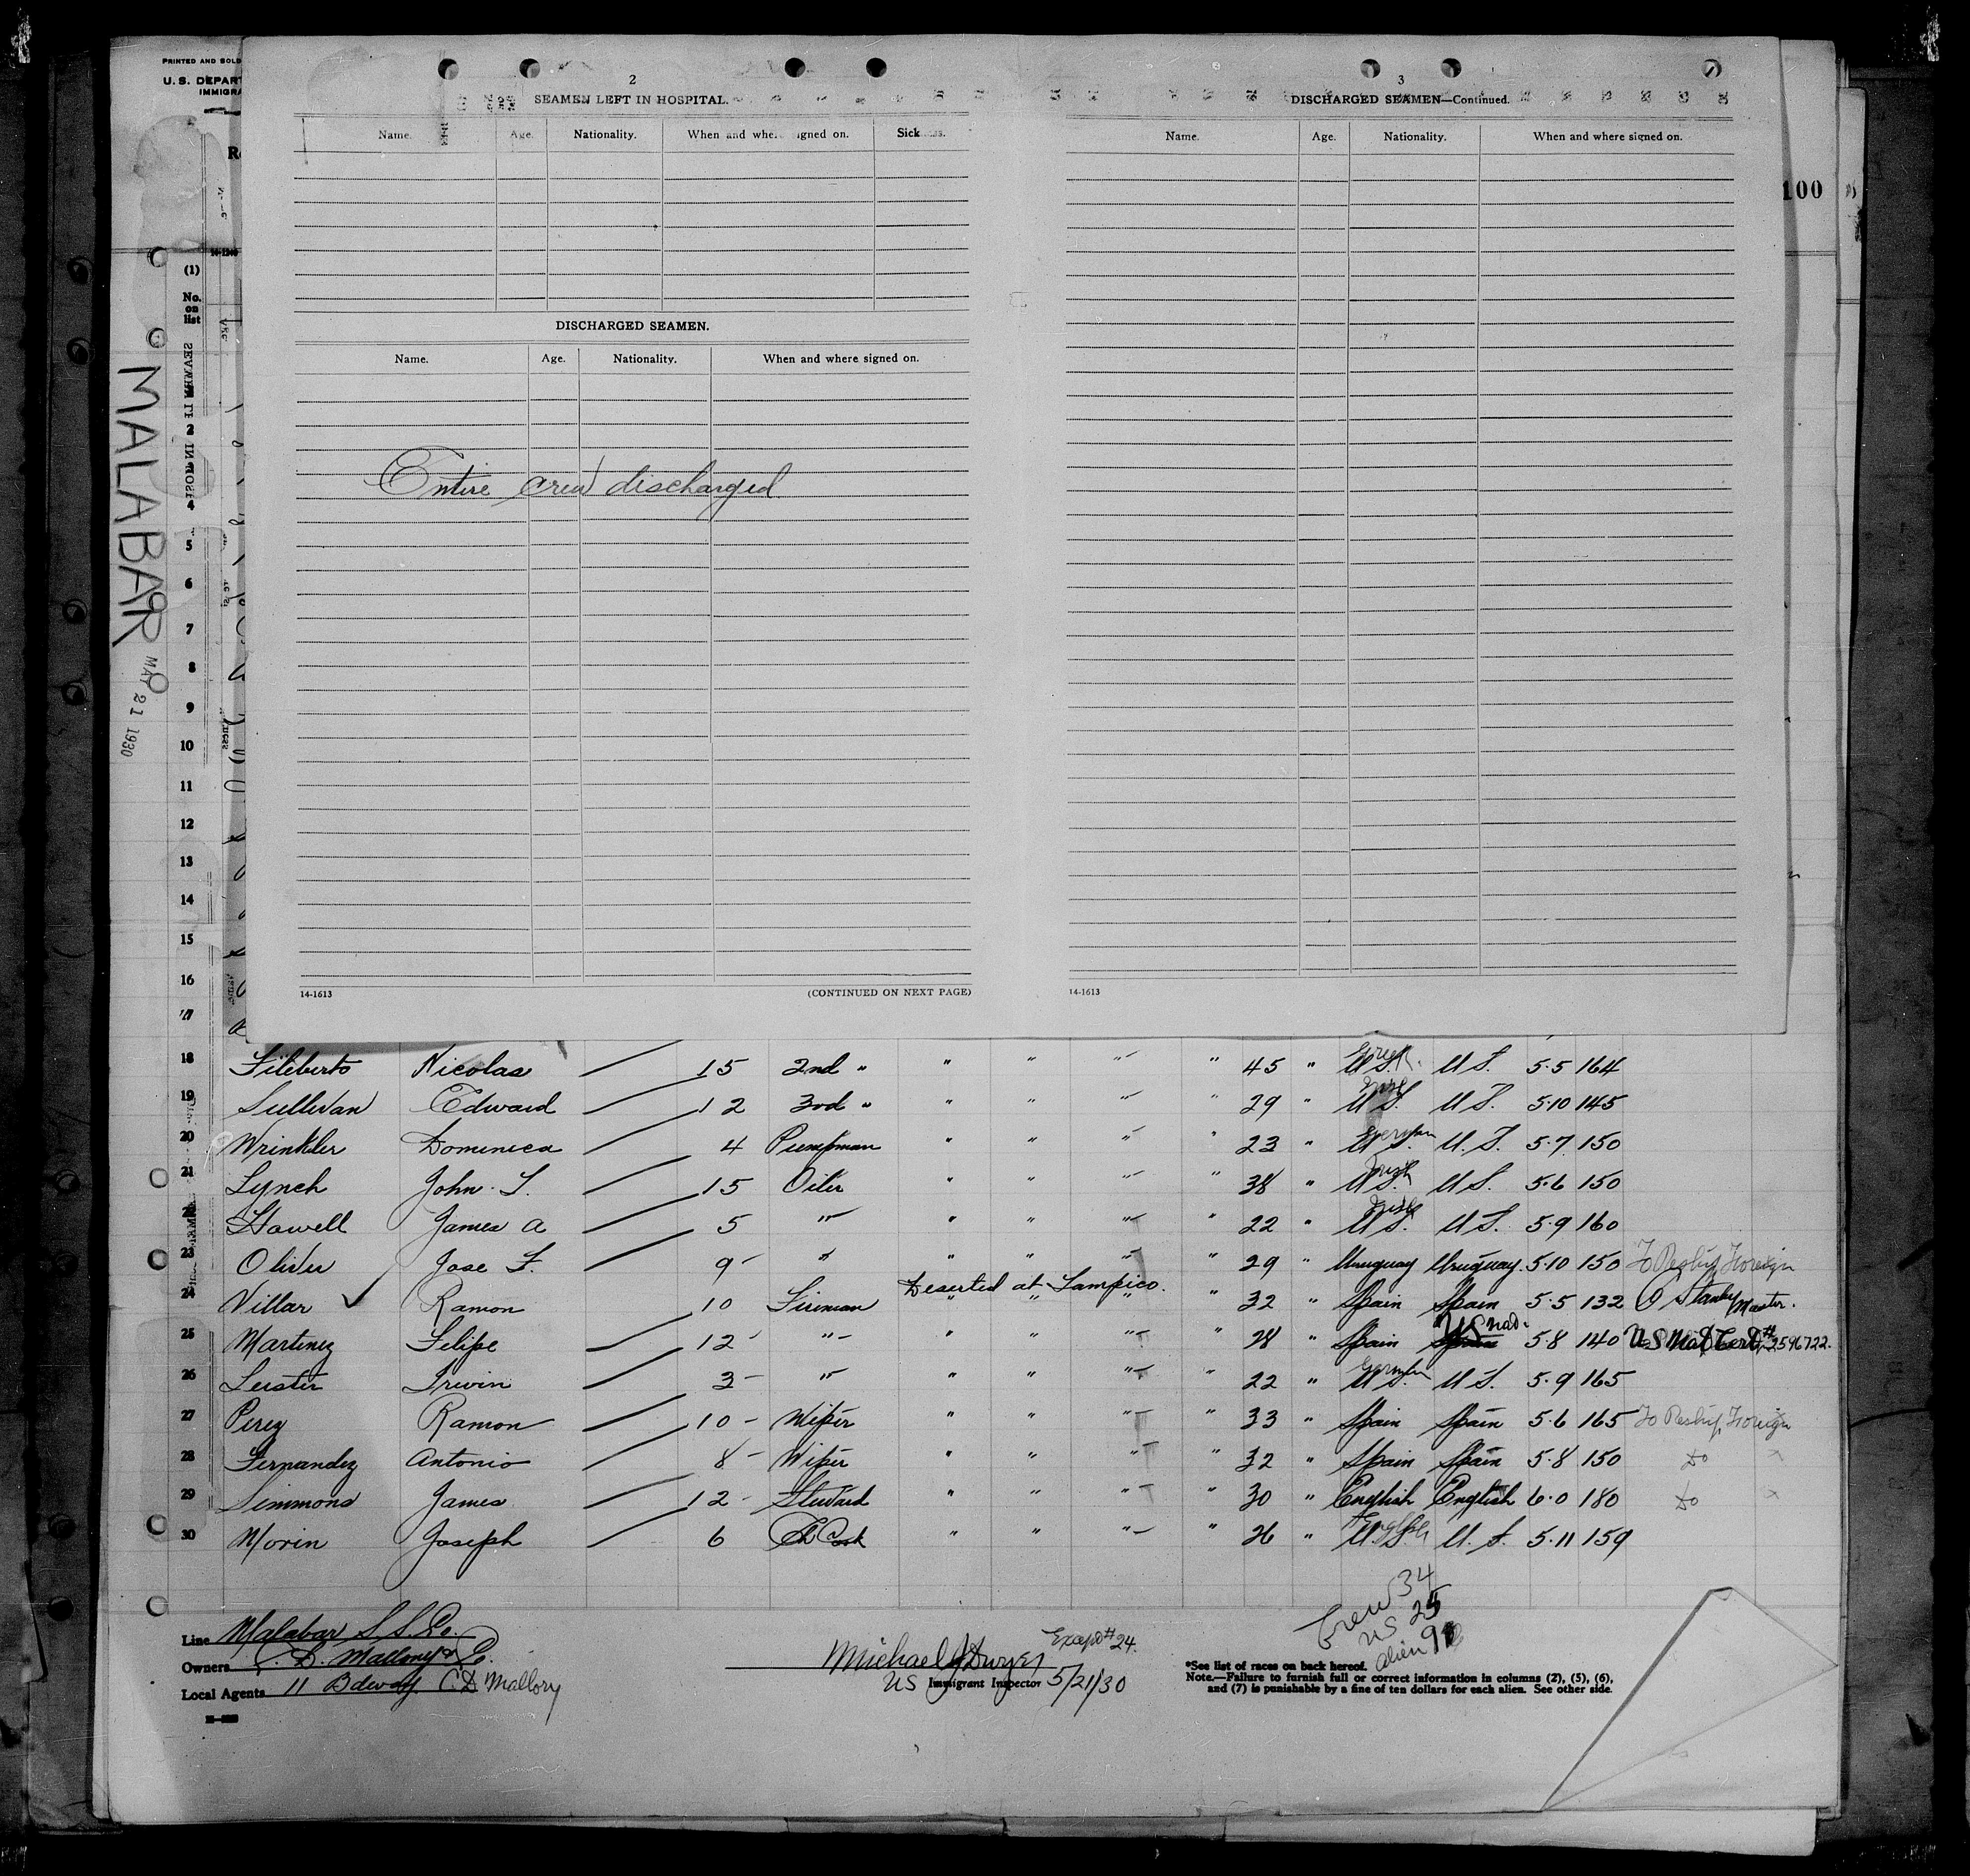 PRINTED AND SOLD
U.S. DEPART
IMMIGRA
100
2
SEAMEN LEFT IN HOSPITAL.
Name. Age. Nationality. When and where signed on. Sick
DISCHARGED SEAMEN.
Name. Age. Nationality. When and where signed on.
Entire crew discharged
14-1613 (CONTINUED ON NEXT PAGE)
3
DISCHARGED SEAMEN—Continued.
Name. Age. Nationality. When and where signed on.
14-1613
MALABAR
MAY 21 1930
(1)
No.
on
list
2
4
5
6
7
8
9
10
11
12
13
14
15
16
17
18 Filiberto Nicolas 15 2nd " " " " " 45 " Greek U S. U S. 5·5 164
19 Sullivan Edward 12 3rd " " " " " 29 " Irish U S. U S. 5·10 145
20 Wrinkler Dominica 4 Pumpman " " " " 23 " German U S. U. S. 5·7 150
21 Lynch John. T. 15 Oiler " " " " 38 " Irish U S. U S. 5·6 150
22 Howell James A 5 " " " " " 22 " Irish U S. U S. 5·9 160
23 Oliver Jose F. 9 " " " " " 29 " Uruguay Uruguay. 5·10 150 To Reship Foreign
24 Villar Ramon 10 Fireman Deserted at Tampico. " 32 " Spain Spain 5·5 132 O Stanley Master.
25 Martinez Felipe 12 " " " " " 28 " Spain Spain US Nad. 5·8 140 US Nat Cert #2596722.
26 Lerster Irwin 3 " " " " " 22 " German U S. U S. 5·9 165
27 Perez Ramon 10 Wiper " " " " 33 " Spain Spain 5·6 165 To Reship Foreign
28 Fernandez Antonio 8 Wiper " " " " 32 " Spain Spain 5·8 150 do
29 Simmons James 12 Steward " " " " 30 " English English 6·0 180 do
30 Morin Joseph 6 Ch Cook " " " " 26 " English U. S. U. S. 5·11 159
Crew 34
US 25
alien 9
Line Malabar S. S. Co.
Owners C. D. Mallory & Co.
Local Agents 11 Bdway. C D Mallory
Except #24.
Michael J Dwyer
US Immigrant Inspector 5/21/30
*See list of races on back hereof.
Note.—Failure to furnish full or correct information in columns (2), (5), (6),
and (7) is punishable by a fine of ten dollars for each alien. See other side.